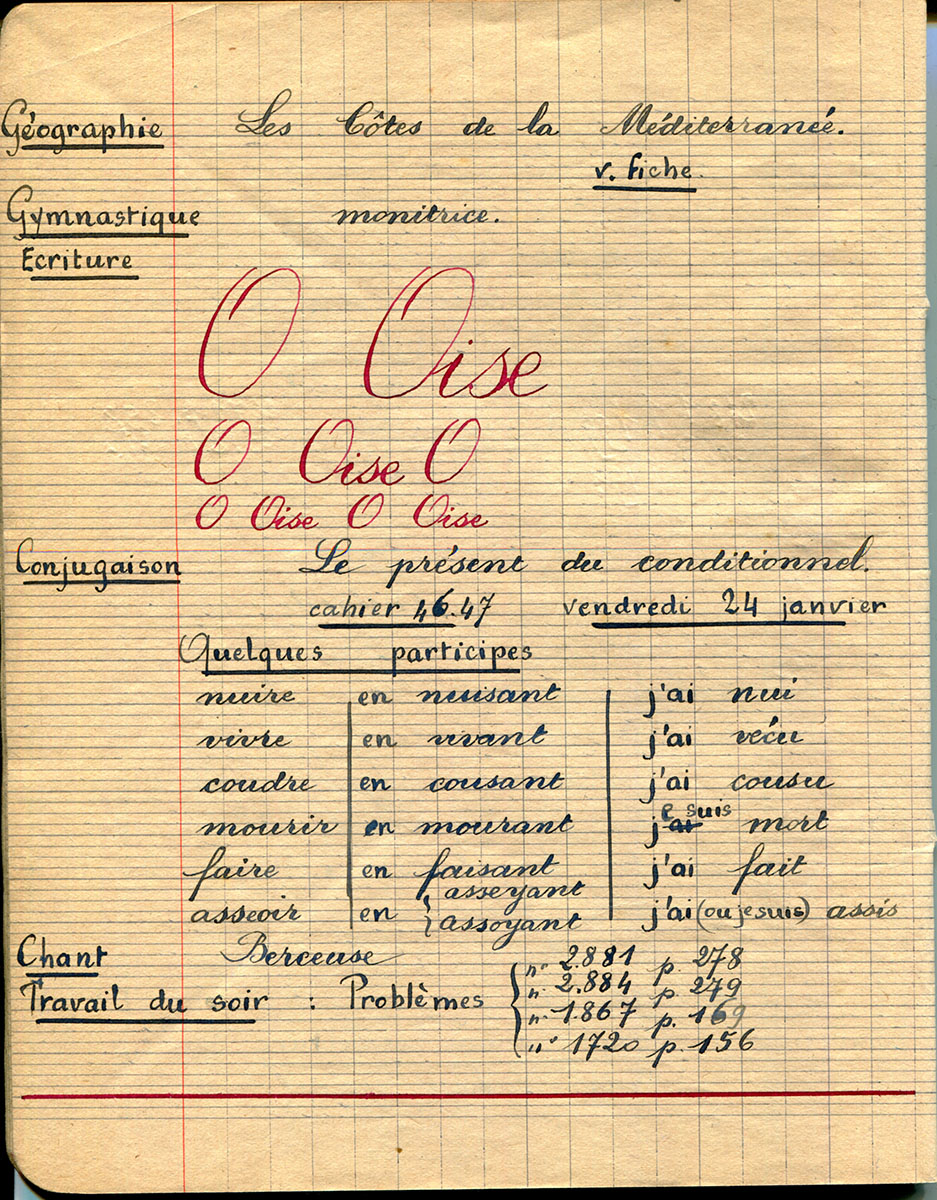 Géographie Les Côtes de la Méditerranée.
v. fiche.
Gymnastique monitrice.
Ecriture
O Oise
O Oise O
O Oise O Oise
Conjugaison Le présent du conditionnel.
cahier 46.47 vendredi 24 janvier
Quelques participes
nuire en nuisant j'ai nui
vivre en vivant j'ai vécu
coudre en cousant j'ai cousu
mourir en mourant je suis mort
faire en faisant j'ai fait
asseoir en { asseyant j'ai (ou je suis) assis
assoyant
Chant Berceuse
Travail du soir : Problèmes { n° 2.881 p. 278
n° 2.884 p. 279
n° 1.867 p. 169
n° 1720 p. 156